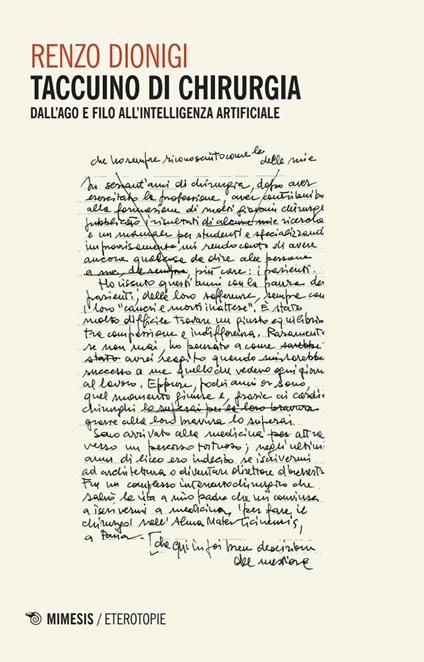 RENZO DIONIGI
TACCUINO DI CHIRURGIA
DALL'AGO E FILO ALL'INTELLIGENZA ARTIFICIALE
che ho sempre riconosciuto come le delle mie
In sessant'anni di chirurgia, dopo aver
esercitato la professione, aver contribuito
alla formazione di molti giovani chirurghi
pubblicato i risultati di alcune mie ricerche
e un manuale per studenti e specializzandi
improvvisamente mi rendo conto di avere
ancora qualcosa da dire alle persone
a me, da sempre, più care: i pazienti.
Ho vissuto questi anni con la paura dei
pazienti, delle loro sofferenze, sempre con
i loro "cancri e morti inattese". È stato
molto difficile trovare un giusto equilibrio
tra compassione e indifferenza. Raramente
se non mai, ho pensato a come sarebbe
stato avrei reagito quando sarebbe
successo a me quello che vedevo ogni giorno
al lavoro. Eppure, pochi anni or sono,
quel momento giunse e, grazie ai cardio
chirurghi lo superai per la loro bravura
grazie alla loro bravura lo superai.
Sono arrivato alla medicina per attra
verso un percorso tortuoso; negli ultimi
anni di liceo ero indeciso se iscrivermi
ad architettura o diventare direttore d'orchestra
Fu un complesso intervento chirurgico che
salvò la vita a mio padre che mi convinse
a iscrivermi a medicina, "per fare il
chirurgo" nell'Alma Mater Ticinensis,
a Pavia. [da qui in poi breve descrizione
del mestiere
MIMESIS / ETEROTOPIE